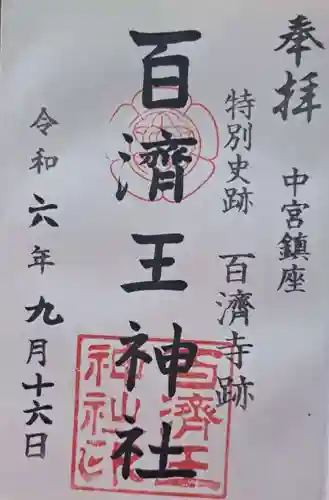 奉拝
中宮鎮座
特別史跡 百濟寺跡
百濟王神社
令和六年九月十六日
百濟王
神社印